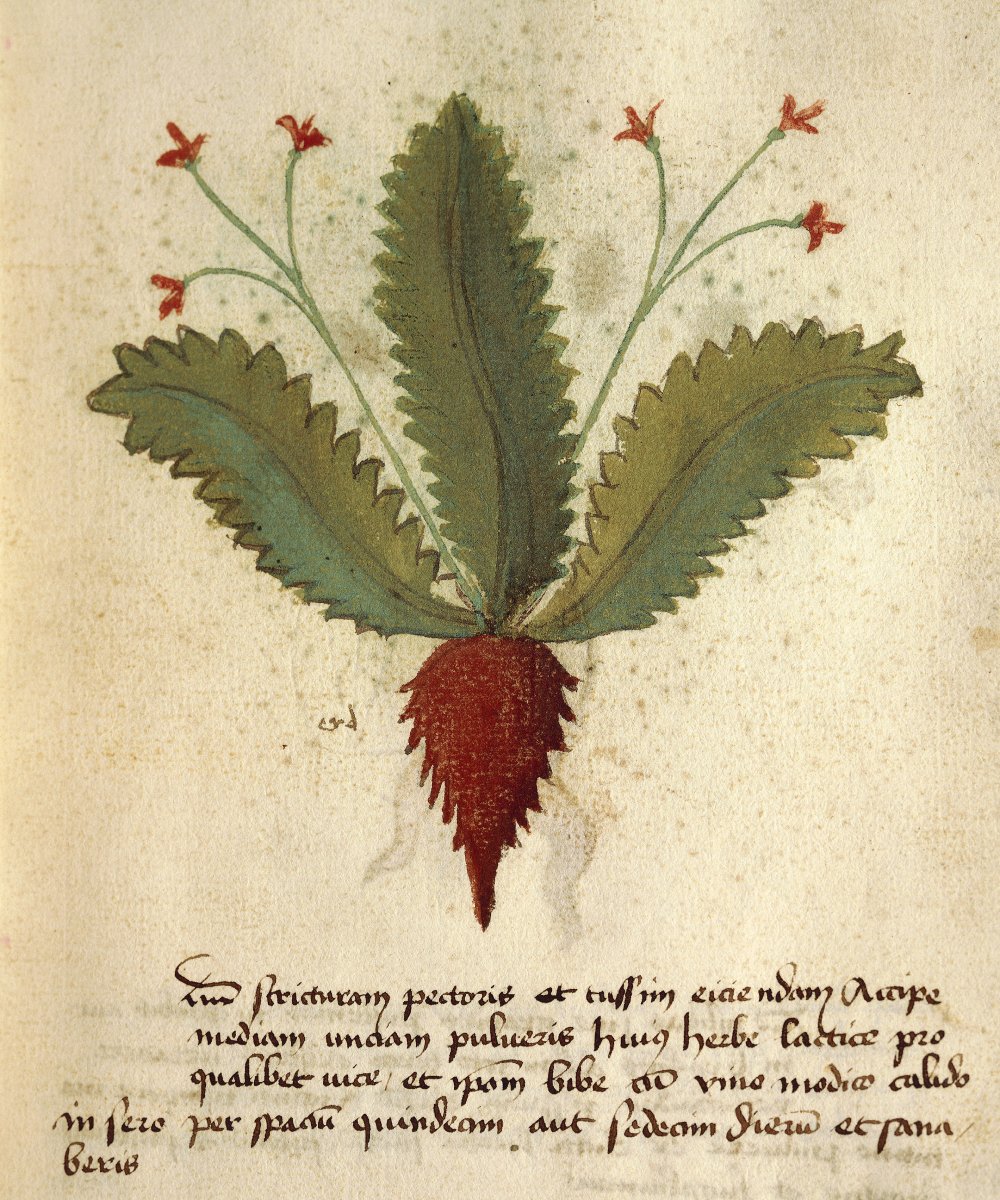 erd
Ad stricturam pectoris et tussim eiciendam Accipe
mediam unciam pulueris huiꝯ herbe lactice pro
qualibet uice, et ip̄am bibe cū vino modico calido
in sero per spaciū quindecim aut sedecim dierū et sana/
beris